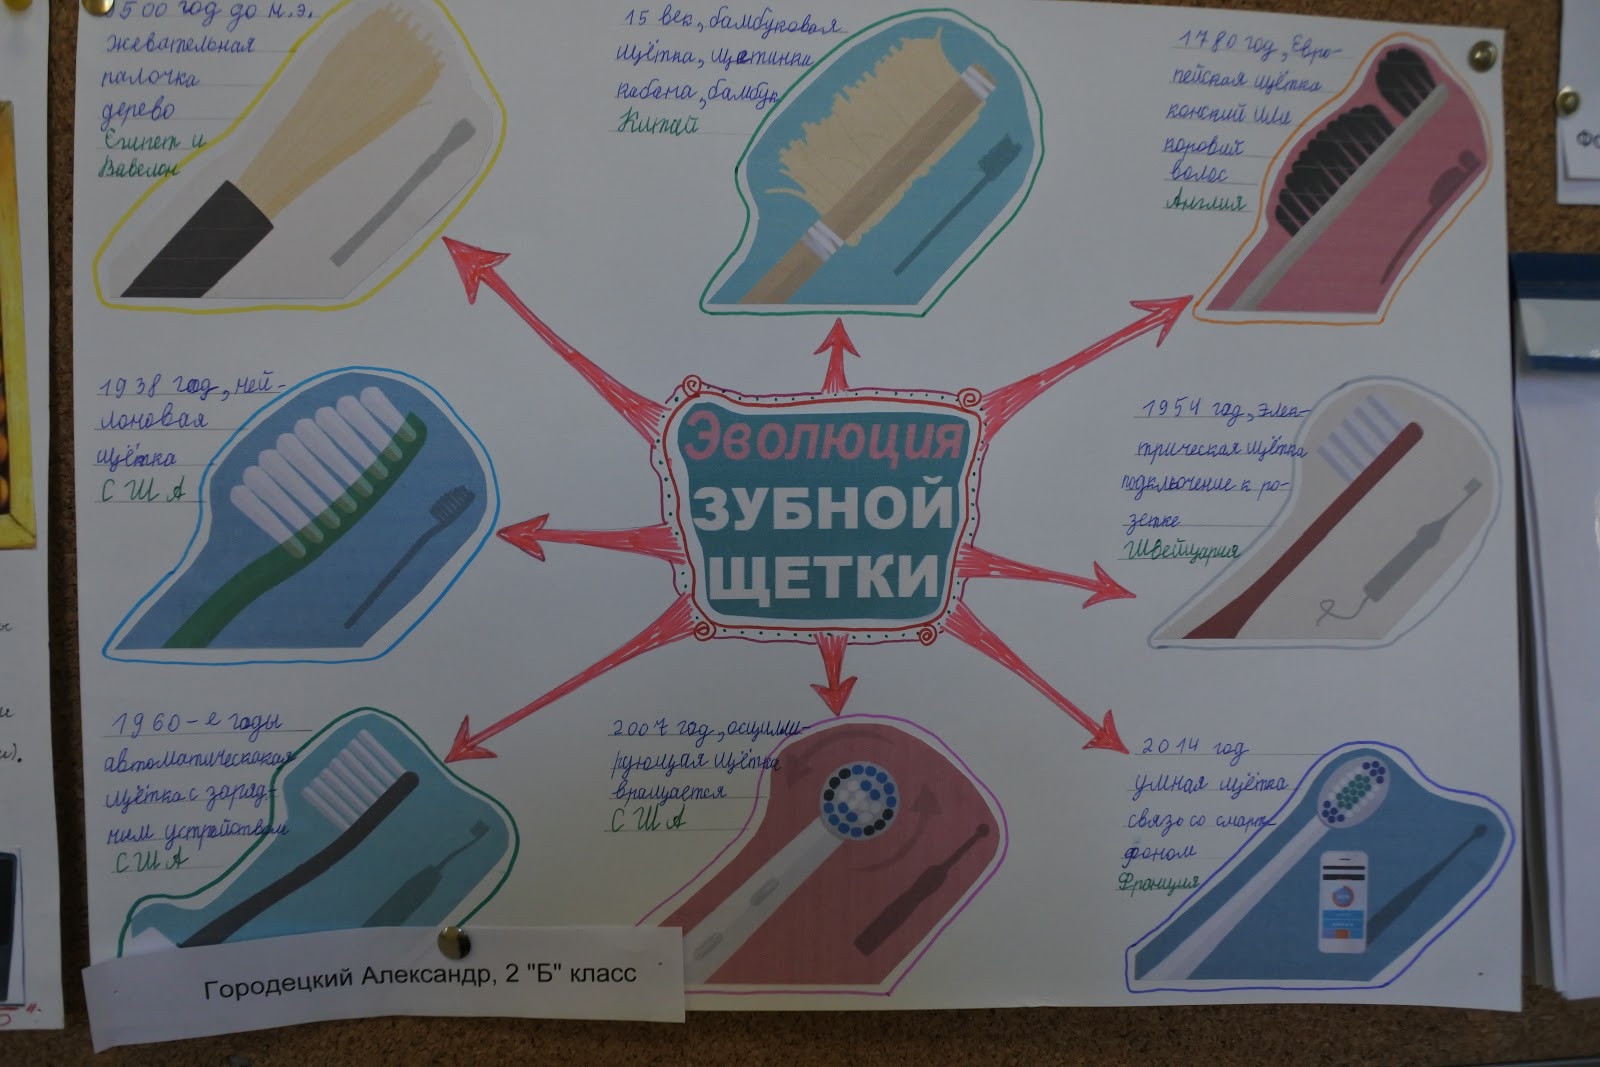 3500 год до н.э.
жевательная
палочка
дерево
Египет и
Вавилон
15 век, бамбуковая
щётка, щетинки
кабана, бамбук
Китай
1780 год, Евро-
пейская щётка
конский или
коровий
волос
Англия
Эволюция
ЗУБНОЙ
ЩЕТКИ
1938 год, ней-
лоновая
щётка
США
1954 год, элек-
трическая щётка
подключение к ро-
зетке
Швейцария
1960-е годы
автоматическая
щётка с заряд-
ным устройством
США
2007 год, осцилли-
рующая щётка
вращается
США
2014 год
умная щётка
связь со смарт-
фоном
Франция
Городецкий Александр, 2 "Б" класс